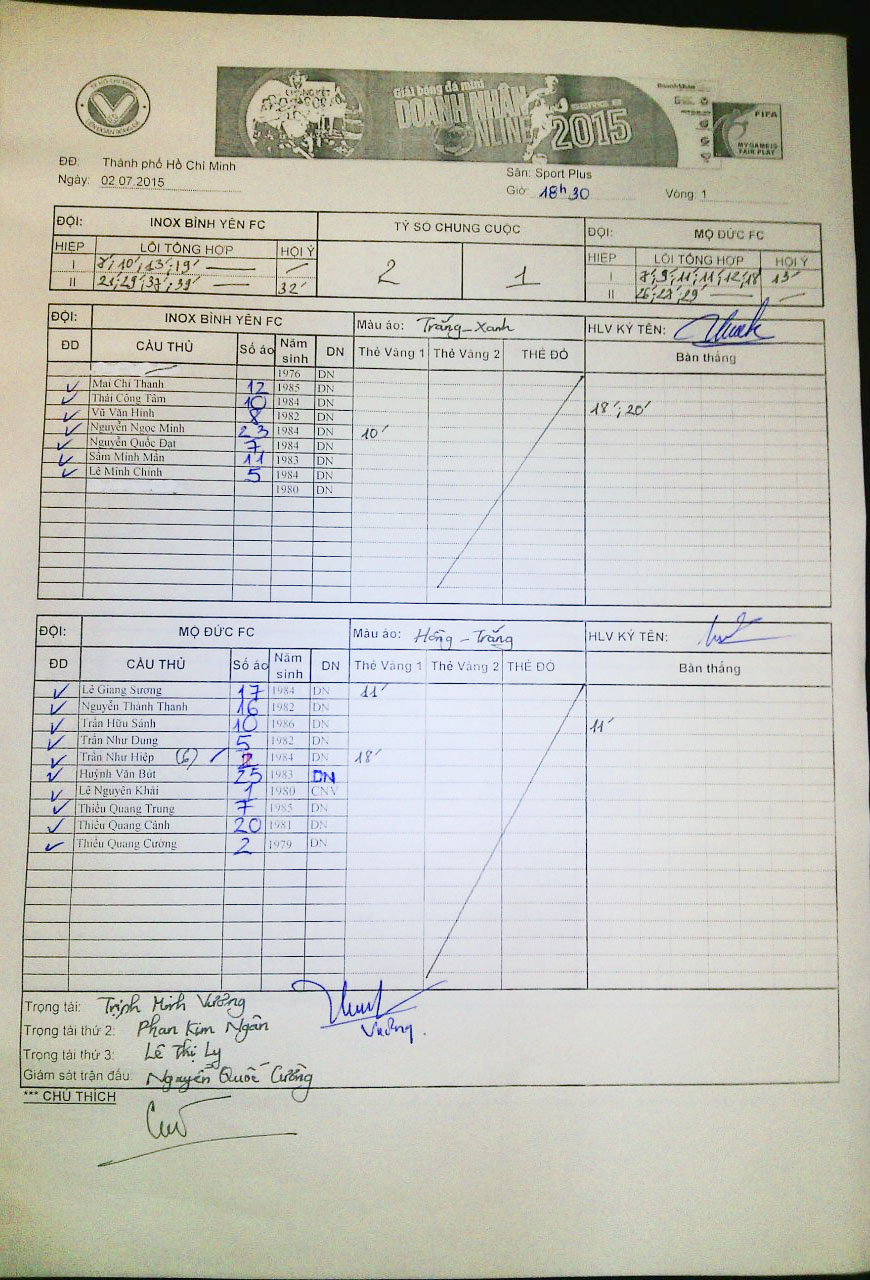 TP HỒ CHÍ MINH
LIÊN ĐOÀN BÓNG ĐÁ
Giải bóng đá mini
DOANH NHÂN
ONLINE 2015
FIFA
MY GAME IS
FAIR PLAY
ĐĐ: Thành phố Hồ Chí Minh
Sân: Sport Plus
Ngày: 02.07.2015
Giờ: 18h30
Vòng: 1
ĐỘI: INOX BÌNH YÊN FC TỶ SO CHUNG CUỘC ĐỘI: MỘ ĐỨC FC
HIỆP LỖI TỔNG HỢP HỘI Ý 2 1 HIỆP LỖI TỔNG HỢP HỘI Ý
I 7', 10', 13', 19' I 7', 9', 11', 11', 12', 18' 13'
II 21', 29', 37', 39' 32' II 26', 27', 29'
ĐỘI: INOX BÌNH YÊN FC Màu áo: Trắng-Xanh HLV KÝ TÊN:
ĐD CẦU THỦ Số áo Năm sinh DN Thẻ Vàng 1 Thẻ Vàng 2 THẺ ĐỎ Bàn thắng
1976 DN
Mai Chí Thanh 12 1985 DN
Thái Công Tâm 10 1984 DN 18', 20'
Vũ Văn Hinh 8 1982 DN
Nguyễn Ngọc Minh 23 1984 DN 10'
Nguyễn Quốc Đạt 7 1984 DN
Sầm Minh Mẫn 11 1983 DN
Lê Minh Chinh 5 1984 DN
1980 DN
ĐỘI: MỘ ĐỨC FC Màu áo: Hồng-Trắng HLV KÝ TÊN:
ĐD CẦU THỦ Số áo Năm sinh DN Thẻ Vàng 1 Thẻ Vàng 2 THẺ ĐỎ Bàn thắng
Lê Giang Sương 17 1984 DN 11'
Nguyễn Thành Thanh 16 1982 DN
Trần Hữu Sánh 10 1986 DN 11'
Trần Như Dung 5 1982 DN
Trần Như Hiệp (6) 2 1984 DN 18'
Huỳnh Văn Bút 25 1983 DN
Lê Nguyên Khải 1 1980 CNV
Thiều Quang Trung 7 1985 DN
Thiều Quang Cảnh 20 1981 DN
Thiều Quang Cường 2 1979 DN
Trọng tài: Trịnh Minh Vương
Vương.
Trọng tài thứ 2: Phan Kim Ngân
Trọng tài thứ 3: Lê Thị Ly
Giám sát trận đấu: Nguyễn Quốc Cường
*** CHÚ THÍCH